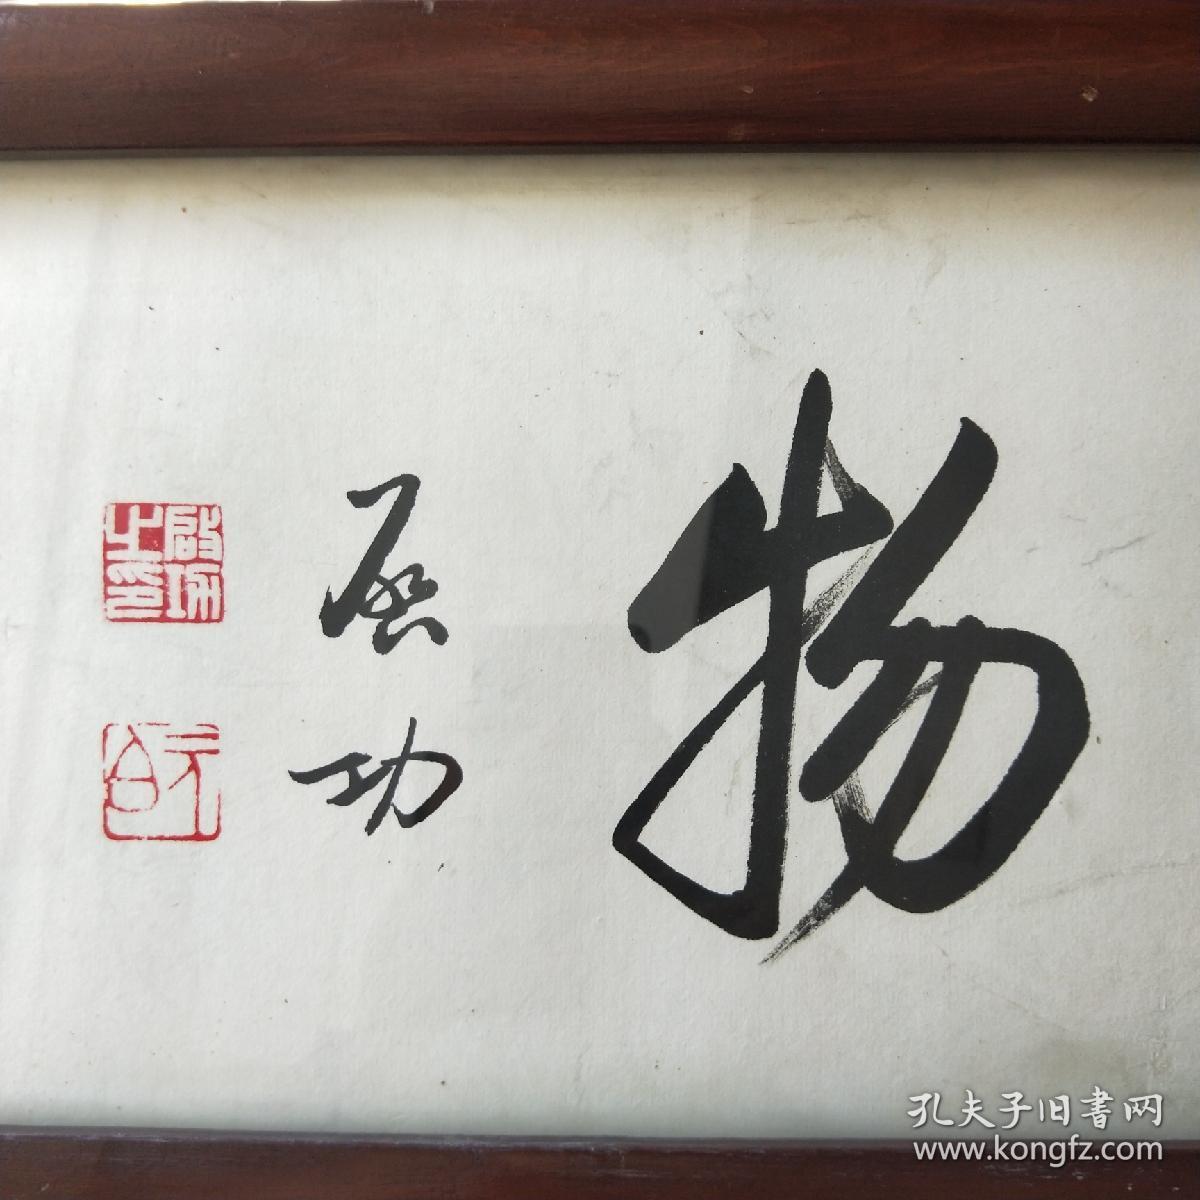 物
启功
启功之印
元白
孔夫子旧书网
www.kongfz.com